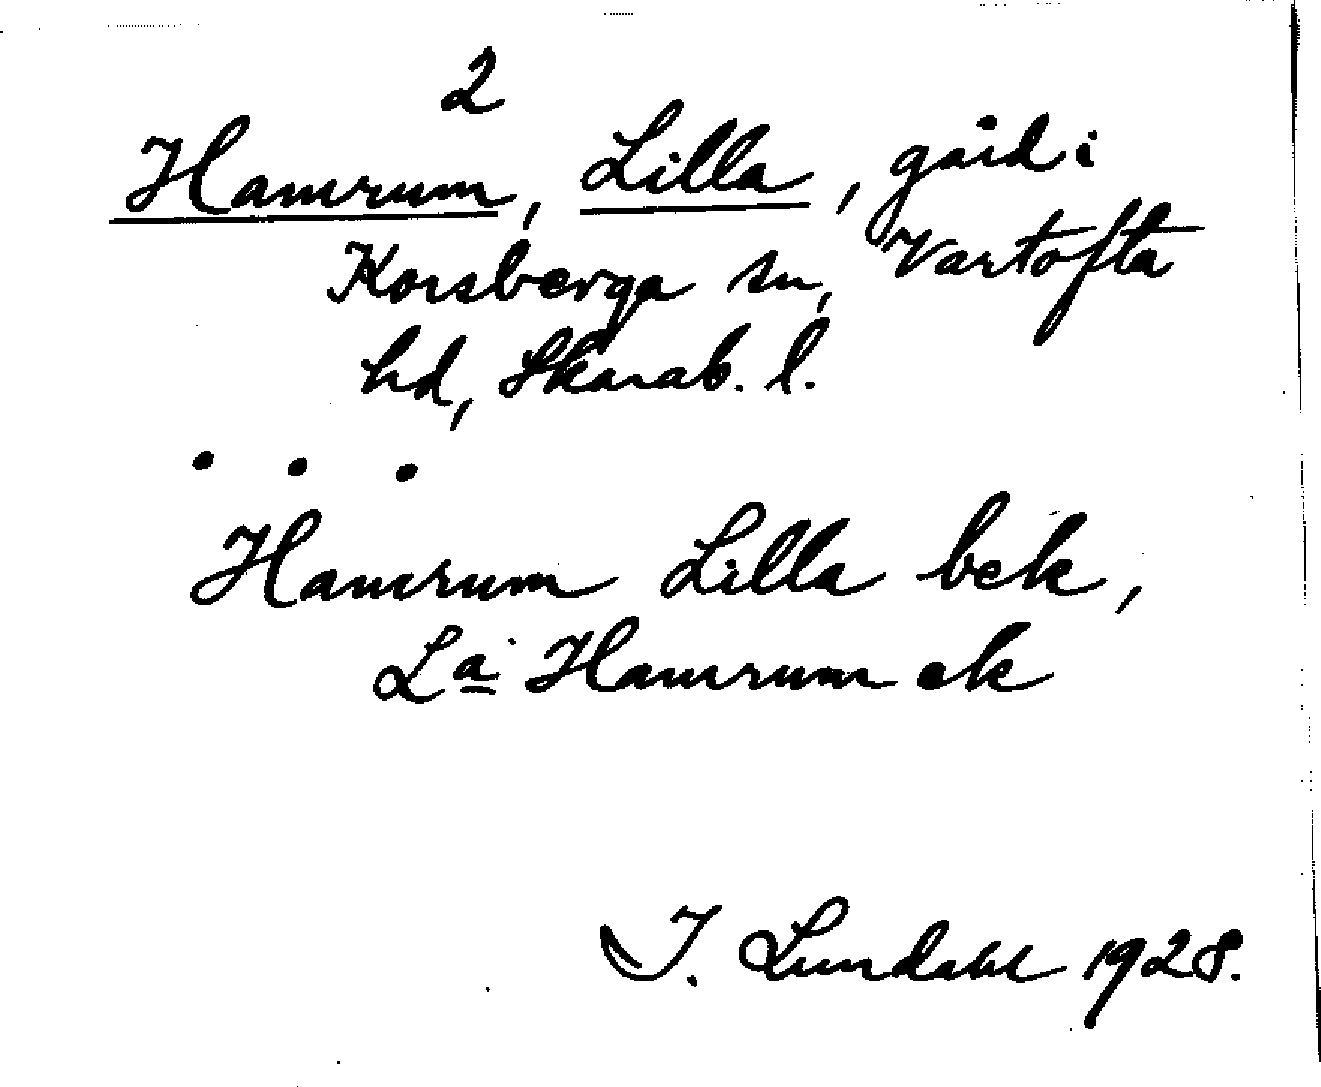 2
Hamrum, Lilla, gård i
Korsberga sn, Vartofta
hd, Skarab. l.
. . .
Hamrum Lilla bek,
La Hamrum ek
I. Lundahl 1928.